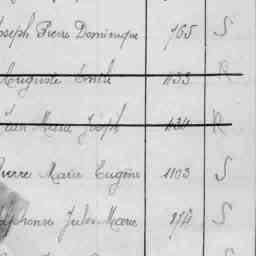 Joseph Pierre Dominique 765 S
Auguste Emile 433 R
Jean Marie Joseph 434 R
Pierre Marie Eugène 1103 S
Alphonse Jules Marie 274 S